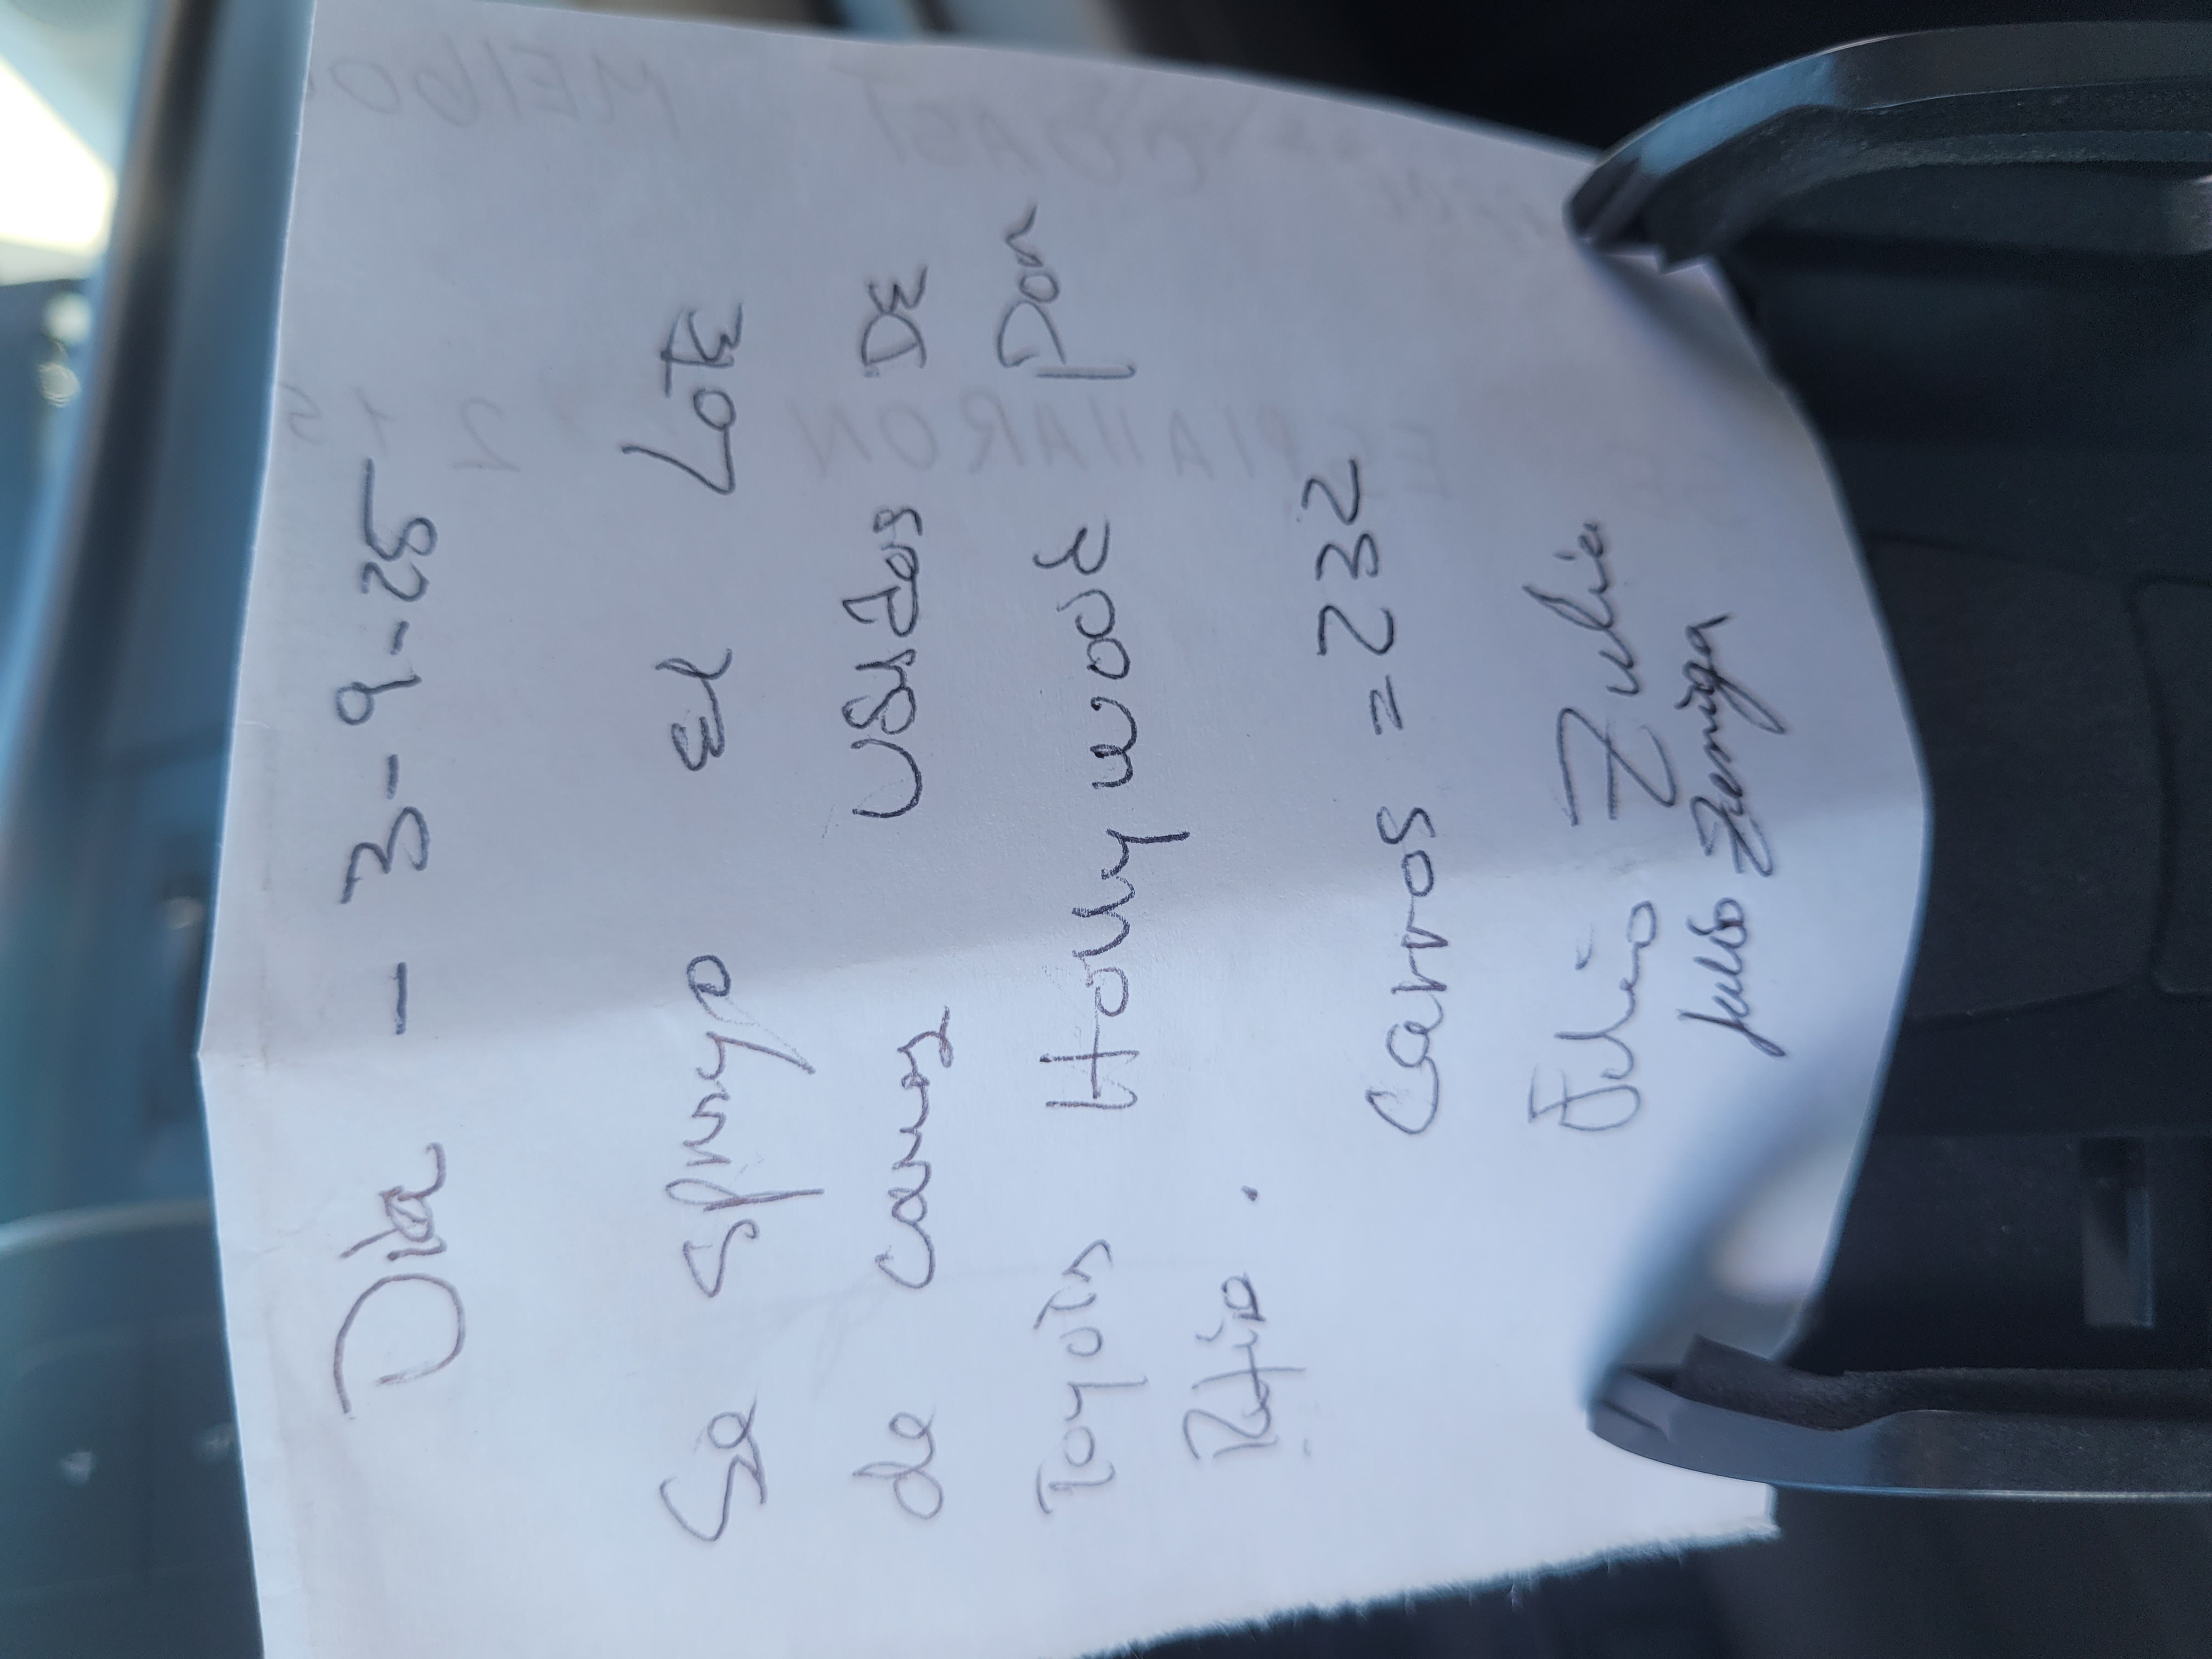 Dia - 3-9-25
Se Spreyo El LoTE
de carros Usados DE
Toyota Hollywood por
carros = 232
Julio
Julio Zuniga